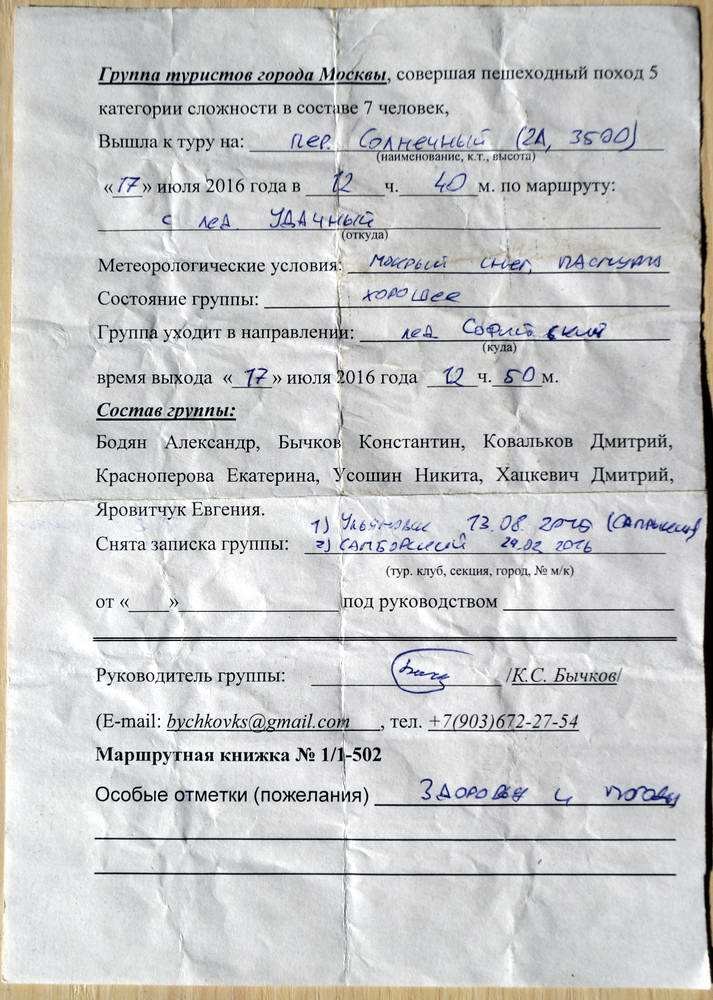 Группа туристов города Москвы, совершая пешеходный поход 5
категории сложности в составе 7 человек,
Вышла к туру на: пер. Солнечный (2А, 3500)
(наименование, к.т., высота)
«17» июля 2016 года в 12 ч. 40 м. по маршруту:
с лед. УДАЧНЫЙ
(откуда)
Метеорологические условия: мокрый снег, пасмурно
Состояние группы: хорошее
Группа уходит в направлении: лед Софийский
(куда)
время выхода «17» июля 2016 года 12 ч. 50 м.
Состав группы:
Бодян Александр, Бычков Константин, Ковальков Дмитрий,
Красноперова Екатерина, Усошин Никита, Хацкевич Дмитрий,
Яровитчук Евгения.
1) 13.08.2016
Снята записка группы: 2) САМБОРСКИЙ 2016
(тур. клуб, секция, город, № м/к)
от «____»________________ под руководством ________________
Руководитель группы: /К.С. Бычков/
(E-mail: bychkovks@gmail.com , тел. +7(903)672-27-54
Маршрутная книжка № 1/1-502
Особые отметки (пожелания) Здоровья и погоды